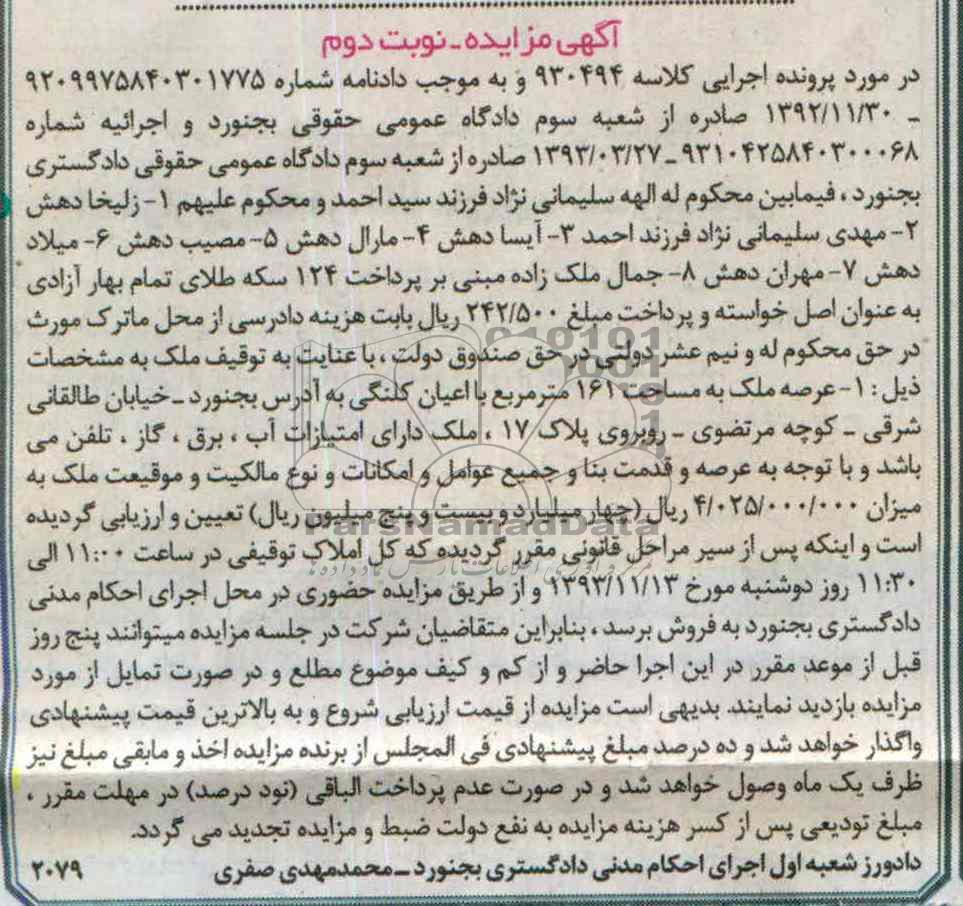 آگهی مزایده ـ نوبت دوم
در مورد پرونده اجرایی کلاسه ۹۳۰۴۹۴ و به موجب دادنامه شماره ۹۲۰۹۹۷۵۸۴۰۳۰۱۷۷۵
ـ ۱۳۹۲/۱۱/۳۰ صادره از شعبه سوم دادگاه عمومی حقوقی بجنورد و اجرائیه شماره
۹۳۱۰۴۲۵۸۴۰۳۰۰۰۶۸ ـ ۱۳۹۳/۰۳/۲۷ صادره از شعبه سوم دادگاه عمومی حقوقی دادگستری
بجنورد ، فیمابین محکوم له الهه سلیمانی نژاد فرزند سید احمد و محکوم علیهم ۱- زلیخا دهش
۲- مهدی سلیمانی نژاد فرزند احمد ۳- آیسا دهش ۴- مارال دهش ۵- مصیب دهش ۶- میلاد
دهش ۷- مهران دهش ۸- جمال ملک زاده مبنی بر پرداخت ۱۲۴ سکه طلای تمام بهار آزادی
به عنوان اصل خواسته و پرداخت مبلغ ۲۴۲/۵۰۰ ریال بابت هزینه دادرسی از محل ماترک مورث
در حق محکوم له و نیم عشر دولتی در حق صندوق دولت ، با عنایت به توقیف ملک به مشخصات
ذیل : ۱- عرصه ملک به مساحت ۱۶۱ مترمربع با اعیان کلنگی به آدرس بجنورد ـ خیابان طالقانی
شرقی ـ کوچه مرتضوی ـ روبروی پلاک ۱۷ ، ملک دارای امتیازات آب ، برق ، گاز ، تلفن می
باشد و با توجه به عرصه و قدمت بنا و جمیع عوامل و امکانات و نوع مالکیت و موقیعت ملک به
میزان ۴/۰۲۵/۰۰۰/۰۰۰ ریال (چهار میلیارد و بیست و پنج میلیون ریال) تعیین و ارزیابی گردیده
ParsNamadData
است و اینکه پس از سیر مراحل قانونی مقرر گردیده که کل املاک توقیفی در ساعت ۱۱:۰۰ الی
۱۱:۳۰ روز دوشنبه مورخ ۱۳۹۳/۱۱/۱۳ و از طریق مزایده حضوری در محل اجرای احکام مدنی
دادگستری بجنورد به فروش برسد ، بنابراین متقاضیان شرکت در جلسه مزایده میتوانند پنج روز
قبل از موعد مقرر در این اجرا حاضر و از کم و کیف موضوع مطلع و در صورت تمایل از مورد
مزایده بازدید نمایند. بدیهی است مزایده از قیمت ارزیابی شروع و به بالاترین قیمت پیشنهادی
واگذار خواهد شد و ده درصد مبلغ پیشنهادی فی المجلس از برنده مزایده اخذ و مابقی مبلغ نیز
ظرف یک ماه وصول خواهد شد و در صورت عدم پرداخت الباقی (نود درصد) در مهلت مقرر ،
مبلغ تودیعی پس از کسر هزینه مزایده به نفع دولت ضبط و مزایده تجدید می گردد.
دادورز شعبه اول اجرای احکام مدنی دادگستری بجنورد ـ محمدمهدی صفری ۲۰۷۹